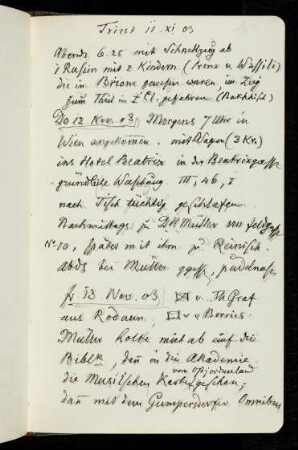 Triest 11. XI 03
Abends 6.25 mit Schnellzug ab
1 Russin mit 2 Kindern (Irene u. Wassili)
die in Brioni gewesen waren, im Zug
zum Theil in I Cl. gefahren
Do 12 Nov. 03, Morgens 7 Uhr in
Wien angekommen. mit Wagen (3 Kr.)
ins Hotel Beatrix in der Beatrixgasse
gründliche Waschung III, 46, I
nach Tisch tüchtig geschlafen
Nachmittags zu DH Müller von Feldgasse
No 10, später mit ihm zu Reinisch.
Abds bei Müller
Fr 13 Nov. 03 v. Th. Graf
aus Rodaun. v. v Berries
Müller holte mich ab auf die
Biblk, dann in die Akademie
die Musilschen Karten gesehen,
von Ostjordanland
dann mit dem Gumpendorfer Omnibus